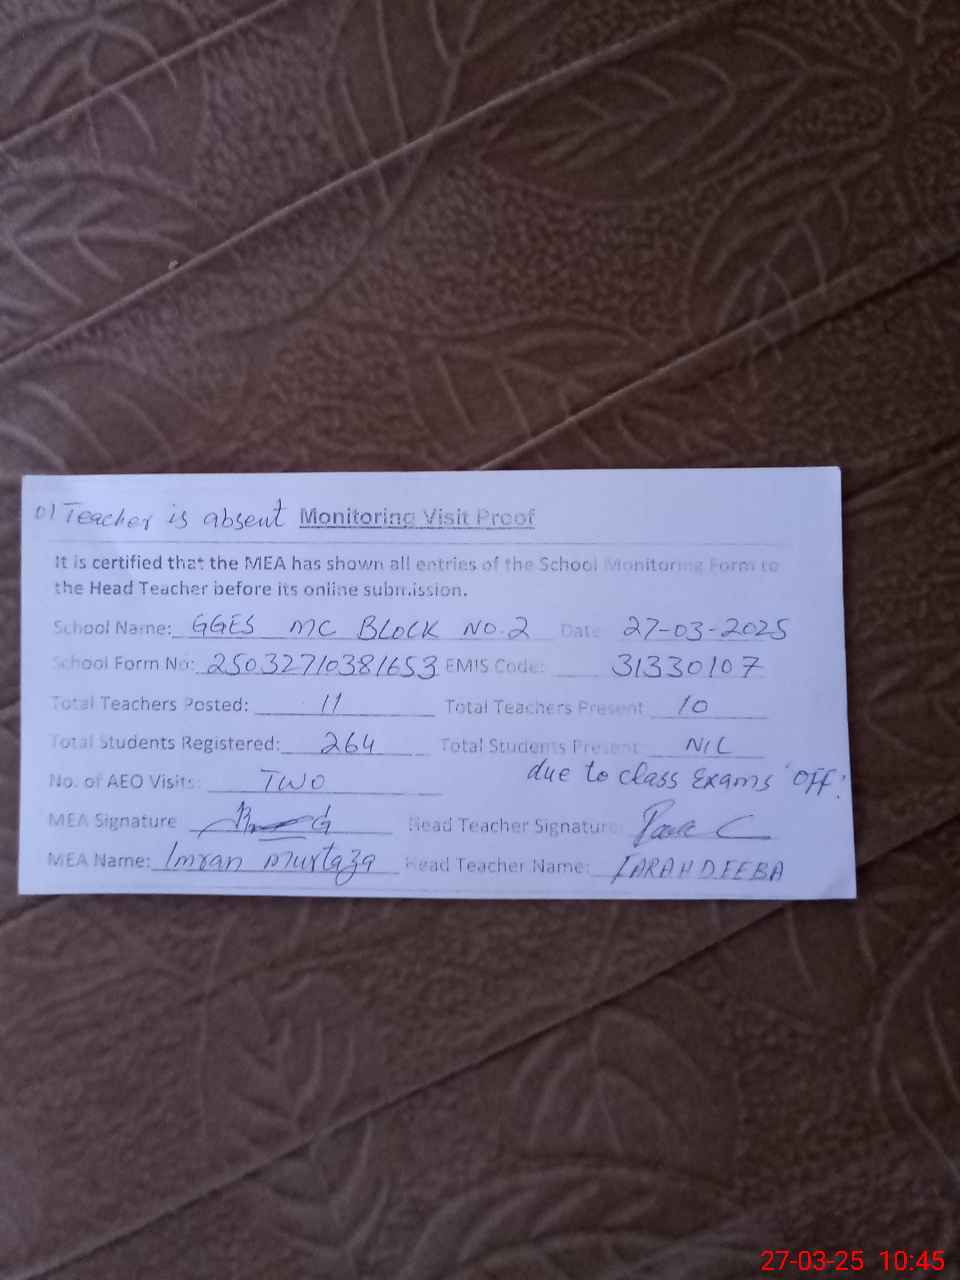 01 Teacher is absent Monitoring Visit Proof
It is certified that the MEA has shown all entries of the School Monitoring Form to
the Head Teacher before its online submission.
School Name: GGES MC BLOCK NO.2 Date 27-03-2025
School Form No: 25032710381653 EMIS Code: 31330107
Total Teachers Posted: 11 Total Teachers Present 10
Total Students Registered: 264 Total Students Present: NIL
No. of AEO Visits: TWO due to class Exams 'OFF'.
MEA Signature Head Teacher Signature:
MEA Name: Imran Murtaza Head Teacher Name: FARAH DEEBA
27-03-25 10:45